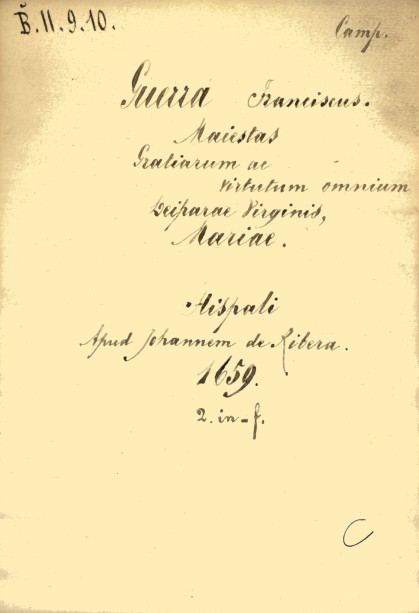 B̌.11.9.10.
Camp.
Guerra Franciscus.
Maiestas
Gratiarum ac
Virtutum omnium
Deiparae Virginis,
Mariae.
Hispali
Apud Johannem de Ribera.
1659.
2. in-f.
C